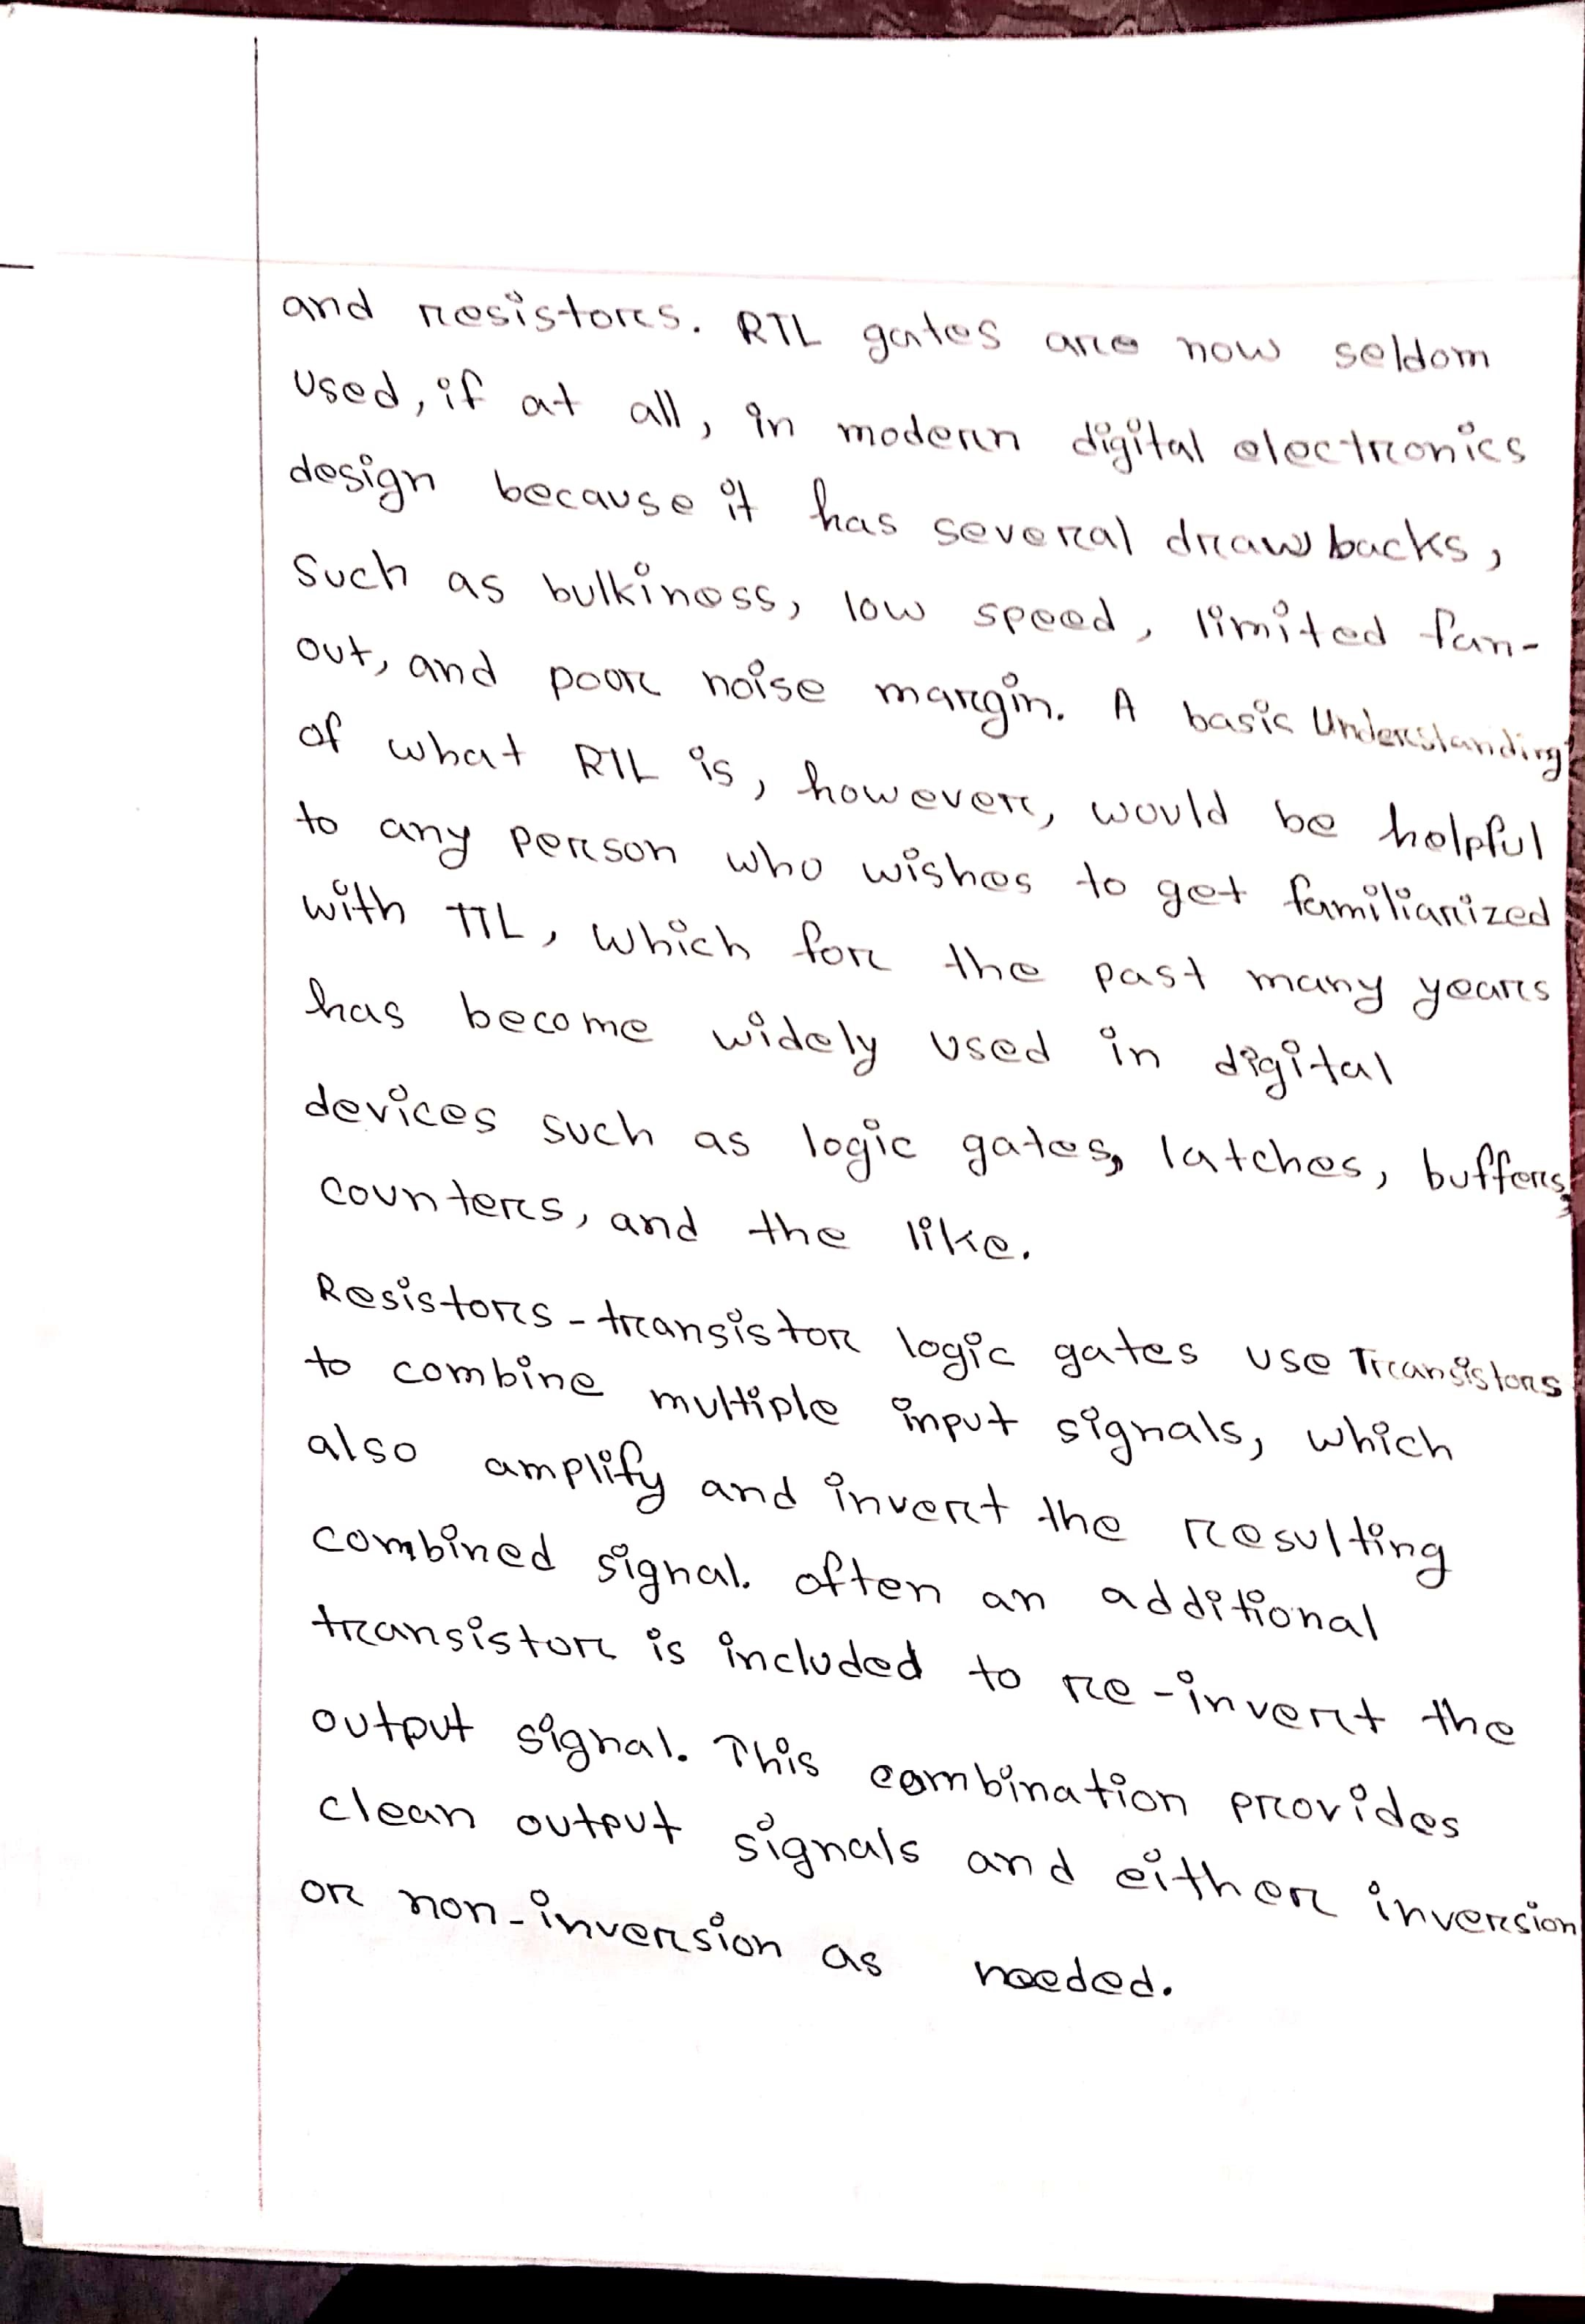 and resistors. RTL gates are now seldom
used, if at all, in modern digital electronics
design because it has several drawbacks,
such as bulkiness, low speed, limited fan-
out, and poor noise margin. A basic Understanding
of what RTL is, however, would be helpful
to any person who wishes to get familiarized
with TTL, which for the past many years
has become widely used in digital
devices such as logic gates, latches, buffers,
counters, and the like.
Resistors-transistor logic gates use Transistors
to combine multiple input signals, which
also amplify and invert the resulting
combined signal. often an additional
transistor is included to re-invert the
output signal. This combination provides
clean output signals and either inversion
or non-inversion as needed.